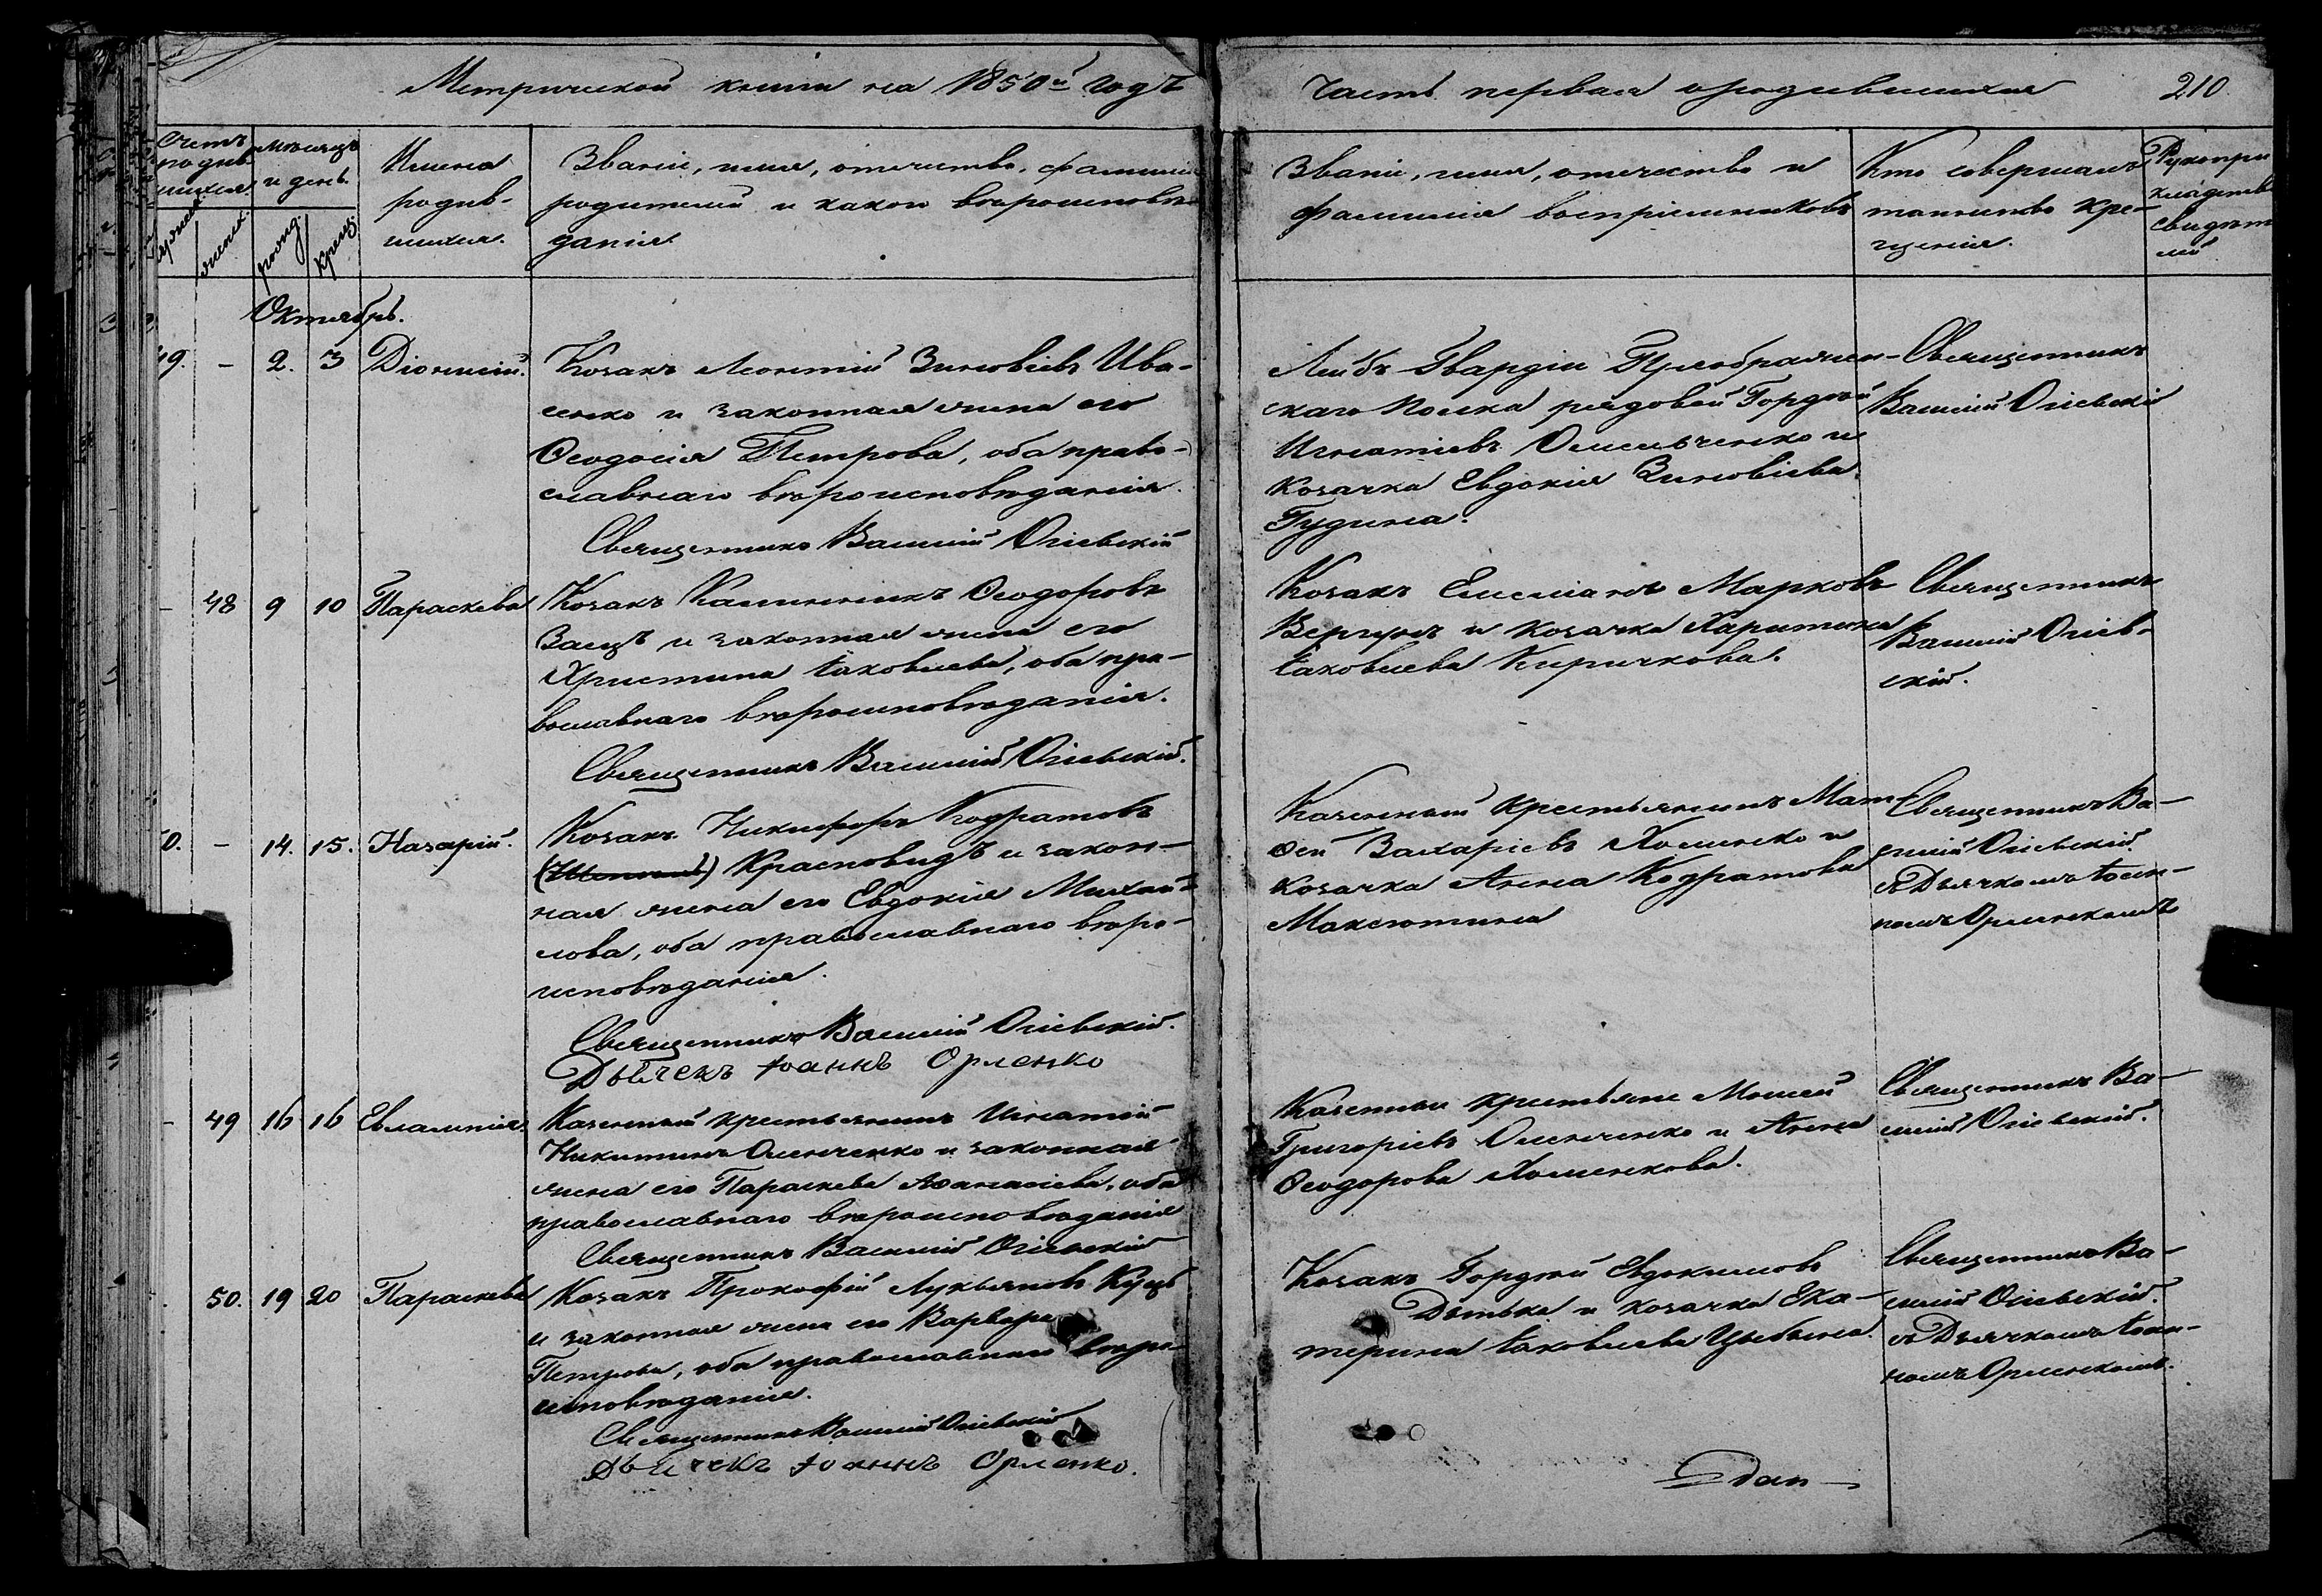 Метрической книги на 1850й годъ
Часть первая о родившихся
210.
Счетъ родив- шихся.
мѣсяцъ и день.
мужеск.
женск.
рожд.
крещ.
Имена
родив-
шихся.
Званіе, имя, отечество, фамилія
родителей и какого вѣроисповѣ-
данія
Званіе, имя, отечество и
фамилія воспріемниковъ
Кто совершалъ
таинство кре-
щенія.
Рукопри
кладств
свидѣт
лей
Октябрь.
49. - 2. 3 Діонисій.
Козакъ Леонтій Зиновіевъ Ива-
сенко и законная жена его
Ѳеодосія Петрова, оба право-
славнаго вѣроисповѣданія.
Священникъ Василій Огіевскій
Лейбъ Гвардіи Преображен-
скаго полка рядовой Гордѣй
Игнатіевъ Омельченко и
козачка Евдокія Зиновіева
Гудима.
Священникъ
Василій Огіевскій
- 48 9 10 Параскева
Козакъ Калинникъ Ѳеодоровъ
Заецъ и законная жена его
Христина Іаковлева, оба пра-
вославнаго вѣроисповѣданія.
Священникъ Василій Огіевскій.
Козакъ Емеліанъ Марковъ
Вергунъ и козачка Харитина
Іаковлева Киричкова.
Священникъ
Василій Огіев-
скій.
50. - 14. 15. Назарій.
Козакъ Никифоръ Кодратовъ
Красновидъ и закон-
ная жена его Евдокія Михай-
лова, оба православнаго вѣро-
исповѣданія.
Священникъ Василій Огіевскій.
Дьячекъ Іоаннъ Орленко
Казенный крестьянинъ Мат-
ѳей Захаріевъ Хоменко и
козачка Анна Кодратова
Максютина
Священникъ Ва-
силій Огіевскій
съ Дьячкомъ Іоан-
номъ Орленкомъ
- 49 16 16 Евлампія.
Казенный крестьянинъ Игнатій
Никитинъ Оленченко и законная
жена его Параскева Аѳанасіева, оба
православнаго вѣроисповѣданія
Священникъ Василій Огіевскій
Казенныи крестьяне Моисей
Григоріевъ Оленченко и Анна
Ѳеодорова Хоменкова.
Священникъ Ва-
силій Огіевскій.
50. 19 20 Параскева
Козакъ Прокофій Лукьяновъ Куцъ
и законная жена его Варвара
Петрова, оба православнаго вѣро-
исповѣданія.
Священникъ Василій Огіевскій
Дьячекъ Іоаннъ Орленко.
Козакъ Гордѣй Евдокимовъ
Дѣтька и козачка Ека-
терина Іаковлева Цыбына.
Священникъ Ва-
силій Огіевскій.
съ Дьячкомъ Іоан-
номъ Орленкомъ.